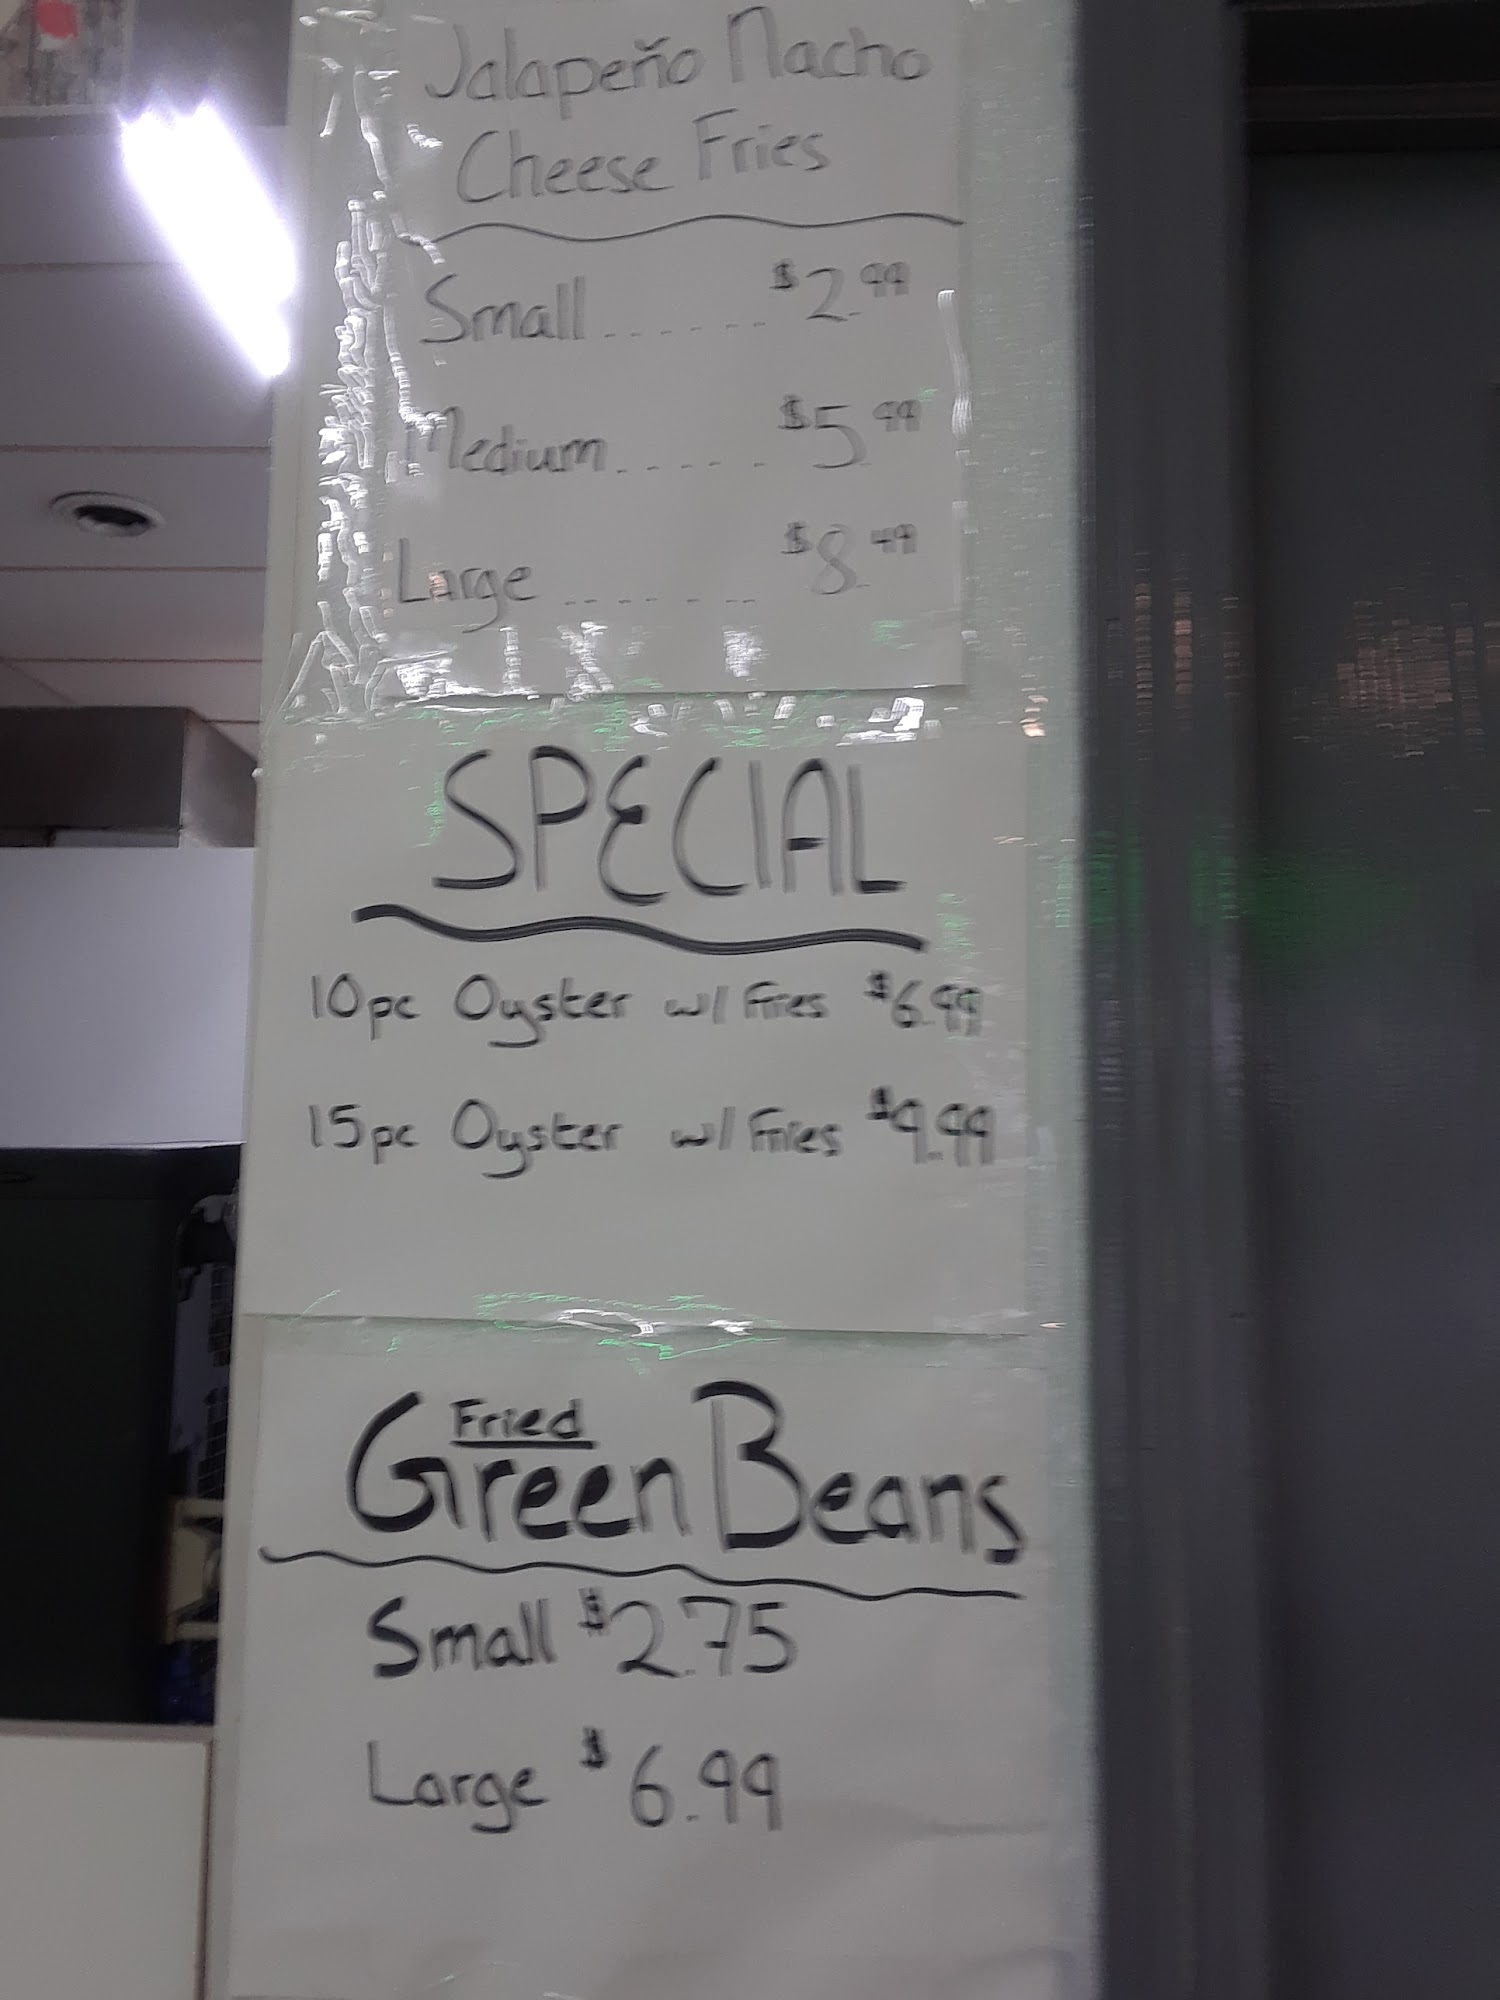 Jalapeño Nacho
Cheese Fries
Small ....... $2.99
Medium ..... $5.99
Large ....... $8.49
SPECIAL
10pc Oyster w/ Fries $6.99
15pc Oyster w/ Fries $9.99
Fried
Green Beans
Small $2.75
Large $6.99